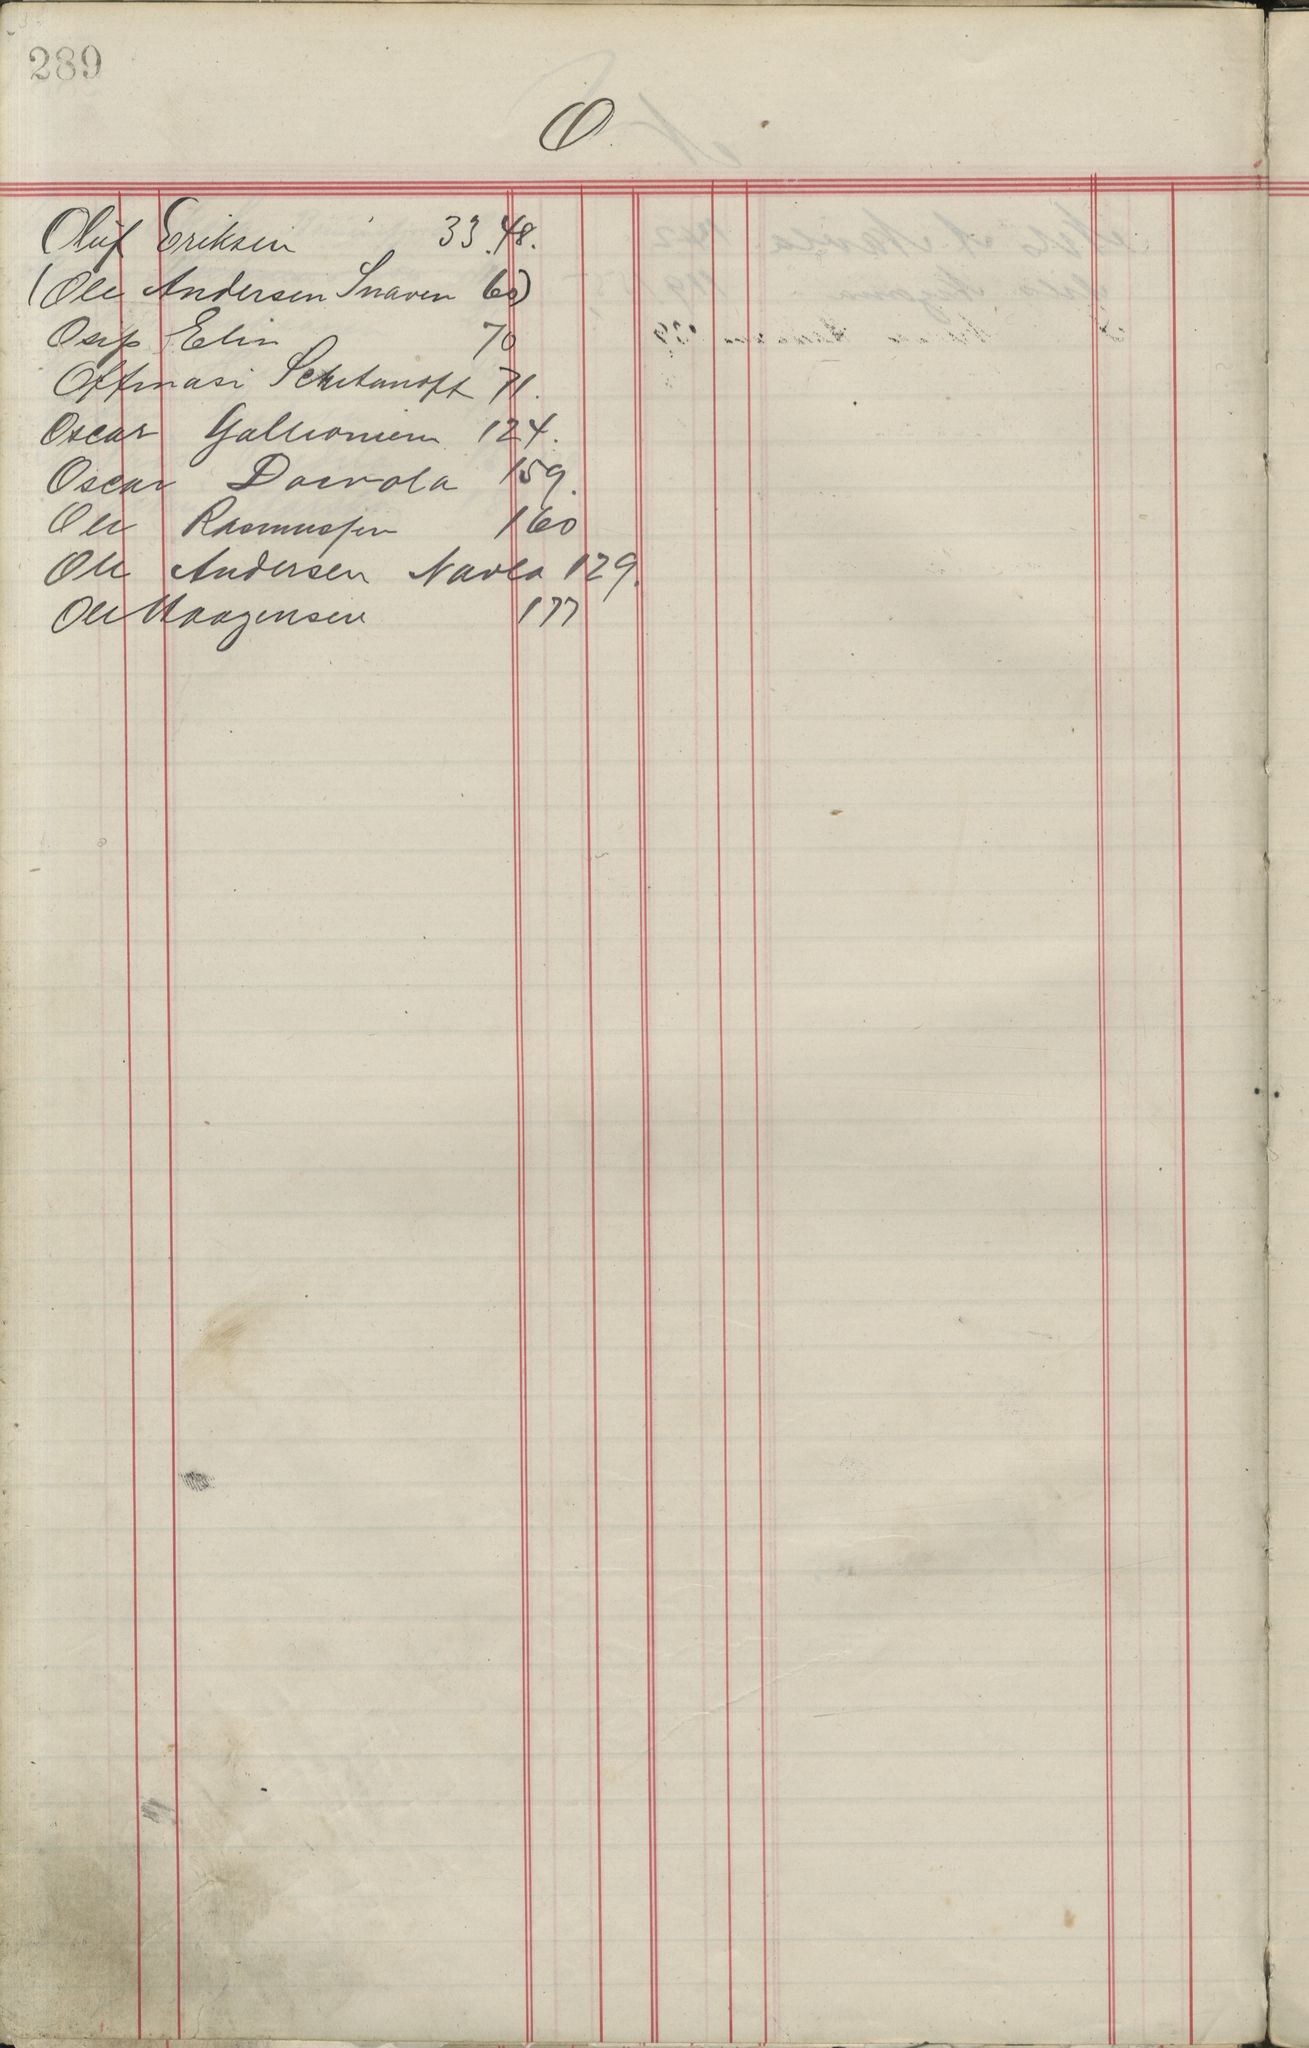 289
O.
Oluf Eriksen 33.48.
(Ole Andersen Snaven 60)
Osip Elin 70
Offinasi 71.
Oscar 124.
Oscar Daerola 159.
Ole Rasmussen 160
Ole Andersen Navla 129.
Ole Haagensen 177